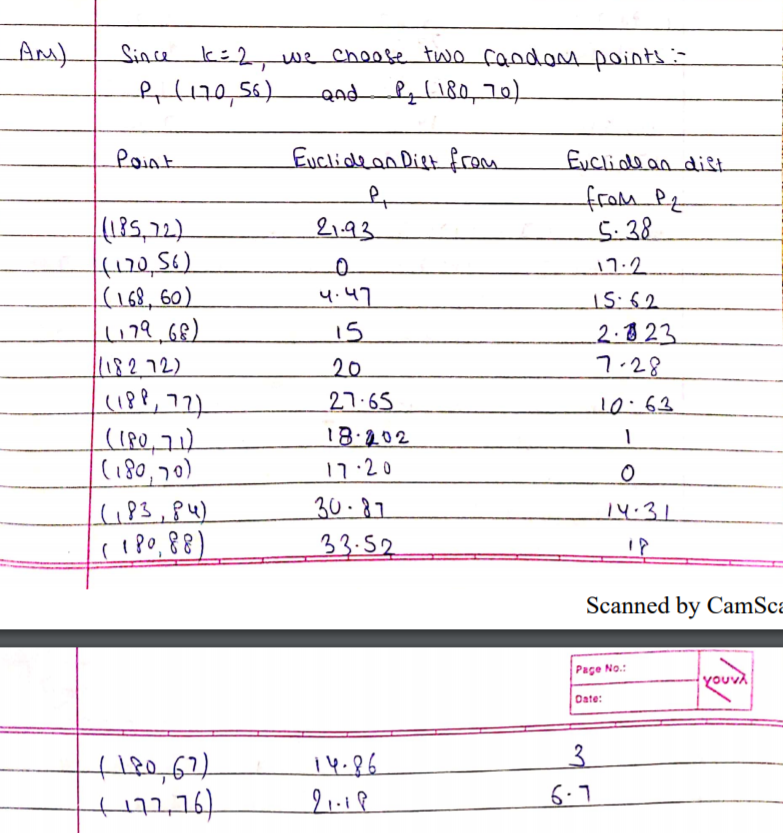 Ans) Since k=2, we choose two random points :-
P₁ (170,56) and P₂ (180,70)
Point Euclidean Dist from P₁ Euclidean dist from P₂
(185,72) 21.93 5.38
(170,56) 0 17.2
(168,60) 4.47 15.62
(179,68) 15 2.23
(182,72) 20 7.28
(188,77) 27.65 10.63
(180,71) 18.02 1
(180,70) 17.20 0
(183,84) 30.87 14.31
(180,88) 33.52 18
Scanned by CamSca
Page No.:
Date:
youva
(180,67) 14.86 3
(177,76) 21.18 6.7